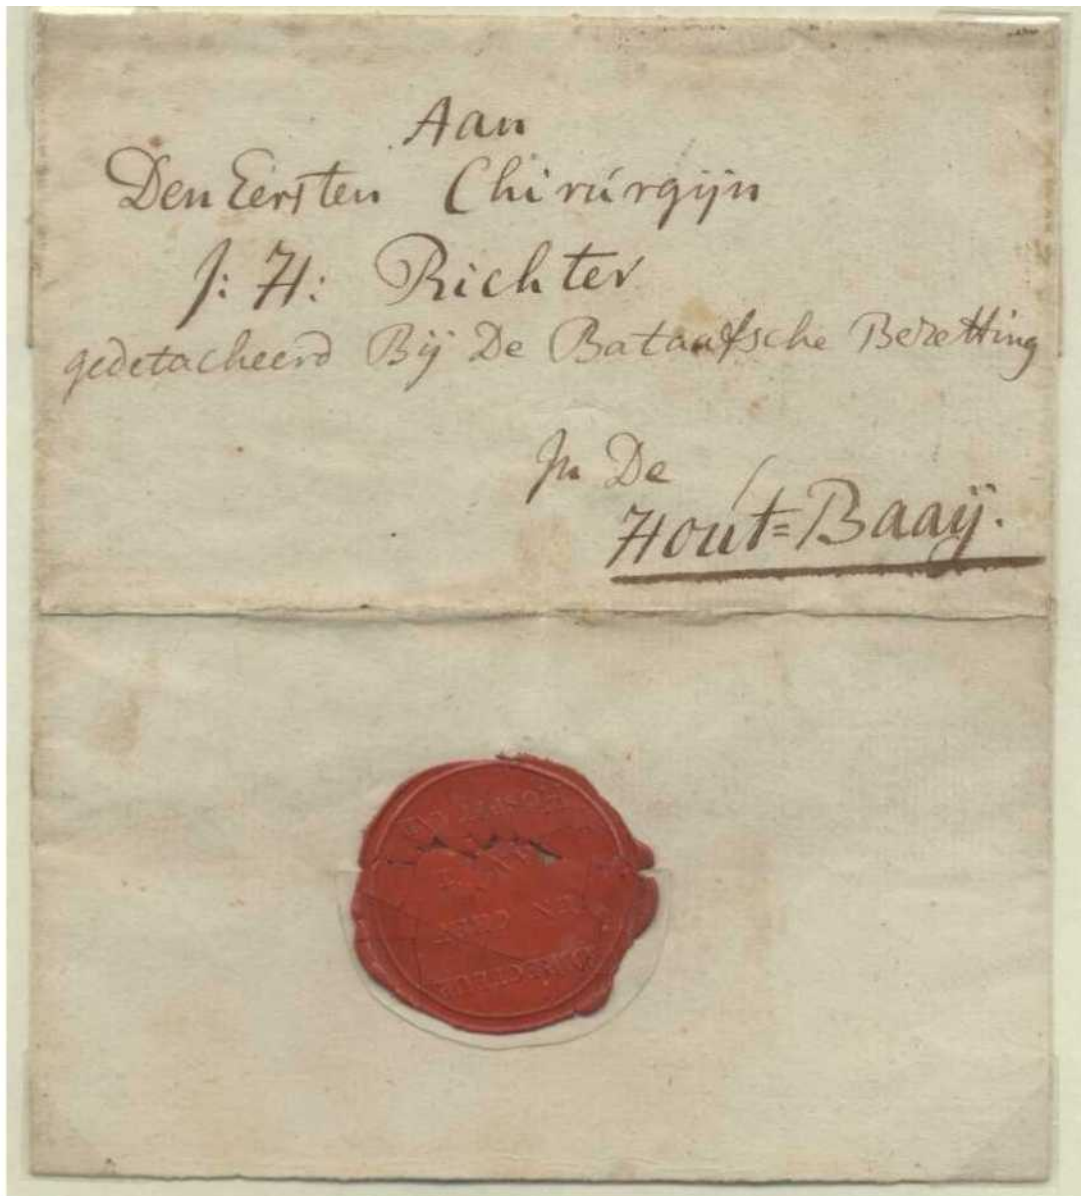 Aan
Den Eersten Chirúrgijn
J: H: Richter
gedetacheerd Bij De Bataafsche Bezetting
In De
Hout=Baaÿ.